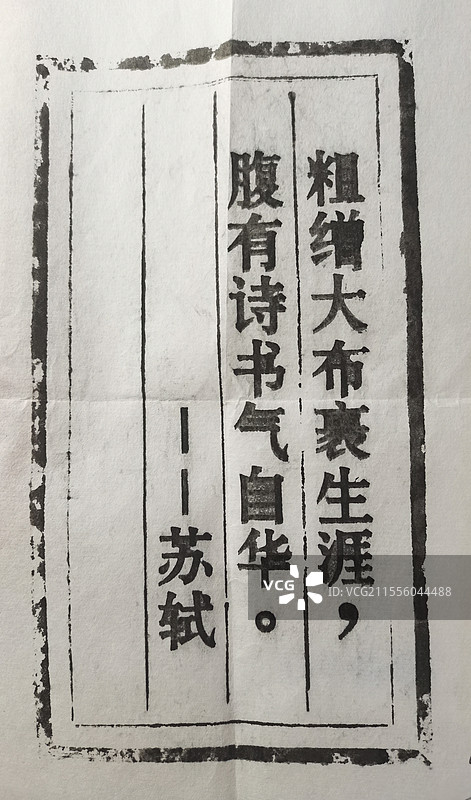 粗缯大布裹生涯，
腹有诗书气自华。
——苏轼
VCG
ID:VCG211556044488